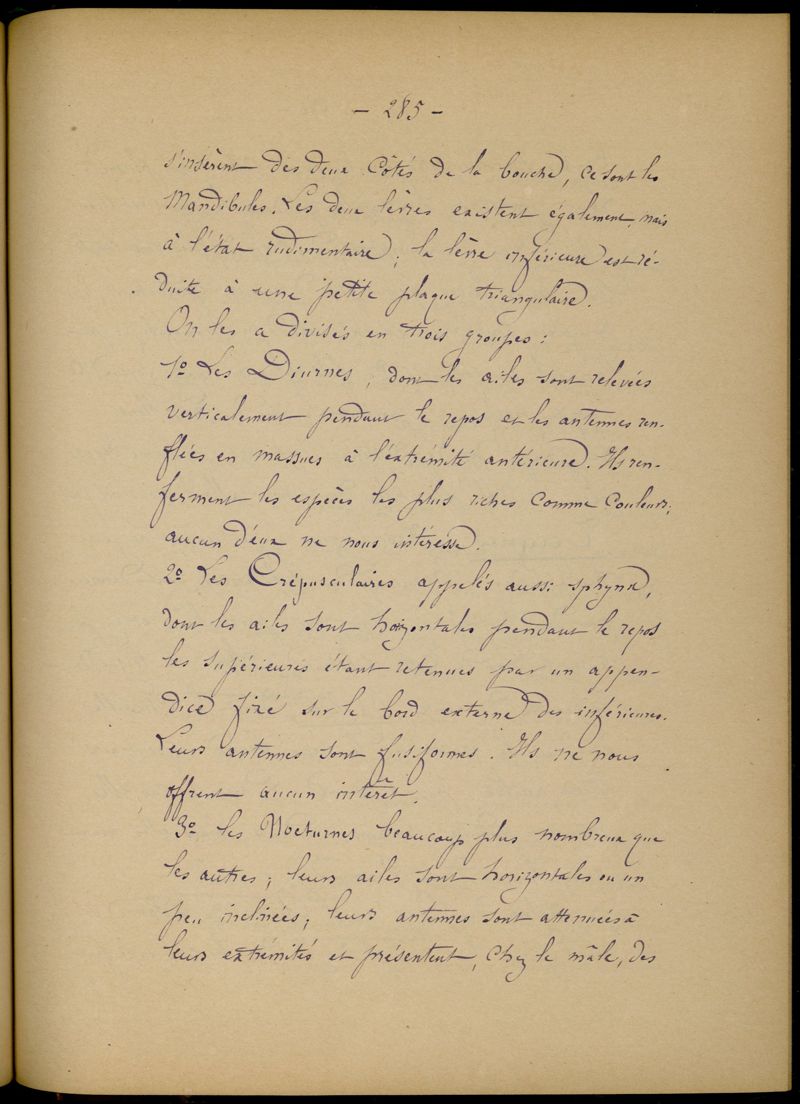 — 285 —
s'insèrent des deux côtés de la bouche, ce sont les
Mandibules. Les deux lèvres existent également, mais
à l'état rudimentaire ; la lèvre inférieure est ré-
duite à une petite plaque triangulaire.
On les a divisés en trois groupes :
1º Les Diurnes, dont les ailes sont relevées
verticalement pendant le repos et les antennes ren-
flées en massues à l'extrémité antérieure. Ils ren-
ferment les espèces les plus riches comme couleurs ;
aucun d'eux ne nous intéresse.
2º Les Crépusculaires appelés aussi sphynx,
dont les ailes sont horizontales pendant le repos
les supérieures étant retenues par un appen-
dice fixé sur le bord externe des inférieures.
Leurs antennes sont fusiformes. Ils ne nous
offrent aucun intérêt.
3º les Nocturnes beaucoup plus nombreux que
les autres ; leurs ailes sont horizontales ou un
peu inclinées ; leurs antennes sont attenuées à
leurs extrémités et présentent, chez le mâle, des